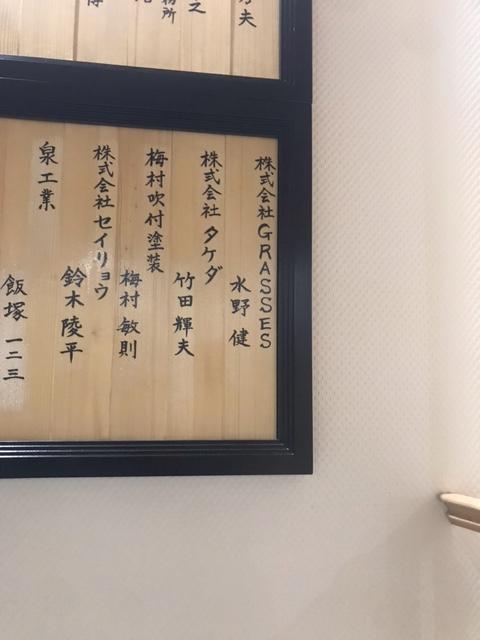 方夫
之
務所
株式会社GRASSES
水野 健
株式会社 タケダ
竹田 輝夫
梅村吹付塗装
梅村 敏則
株式会社 セイリョウ
鈴木 陵平
泉工業
飯塚 一二三